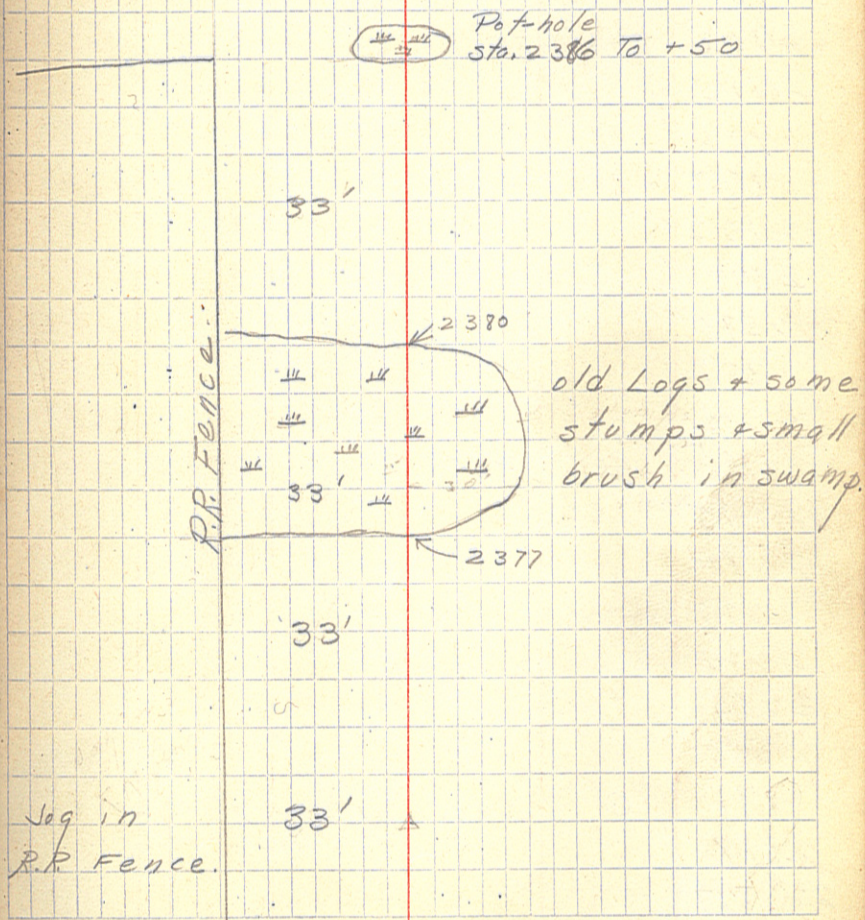 Pot-hole
sta. 2386 To +50
33'
2380
R.R. Fence.
old Logs + some
stumps + small
brush in swamp.
33'
2377
33'
Jog in
R.R. Fence.
33'